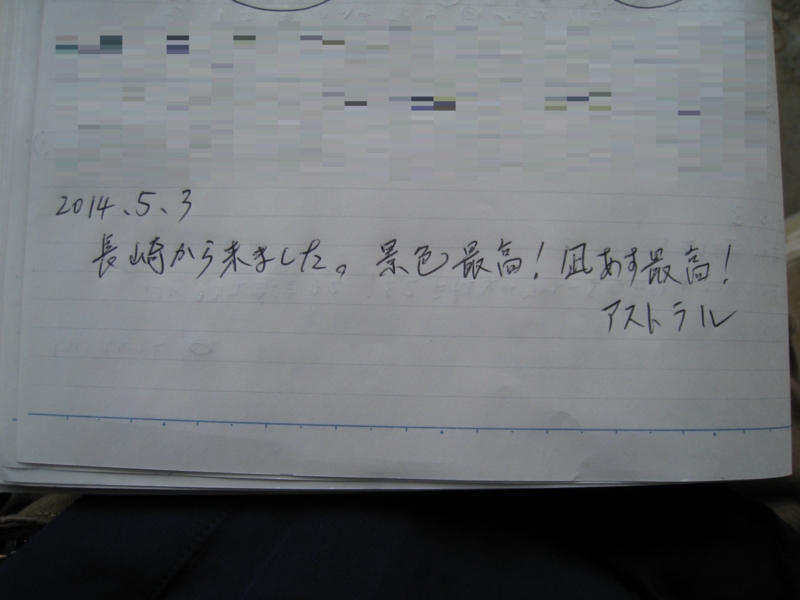 2014、5、3
長崎から来ました。景色最高!凪あす最高!
アストラル